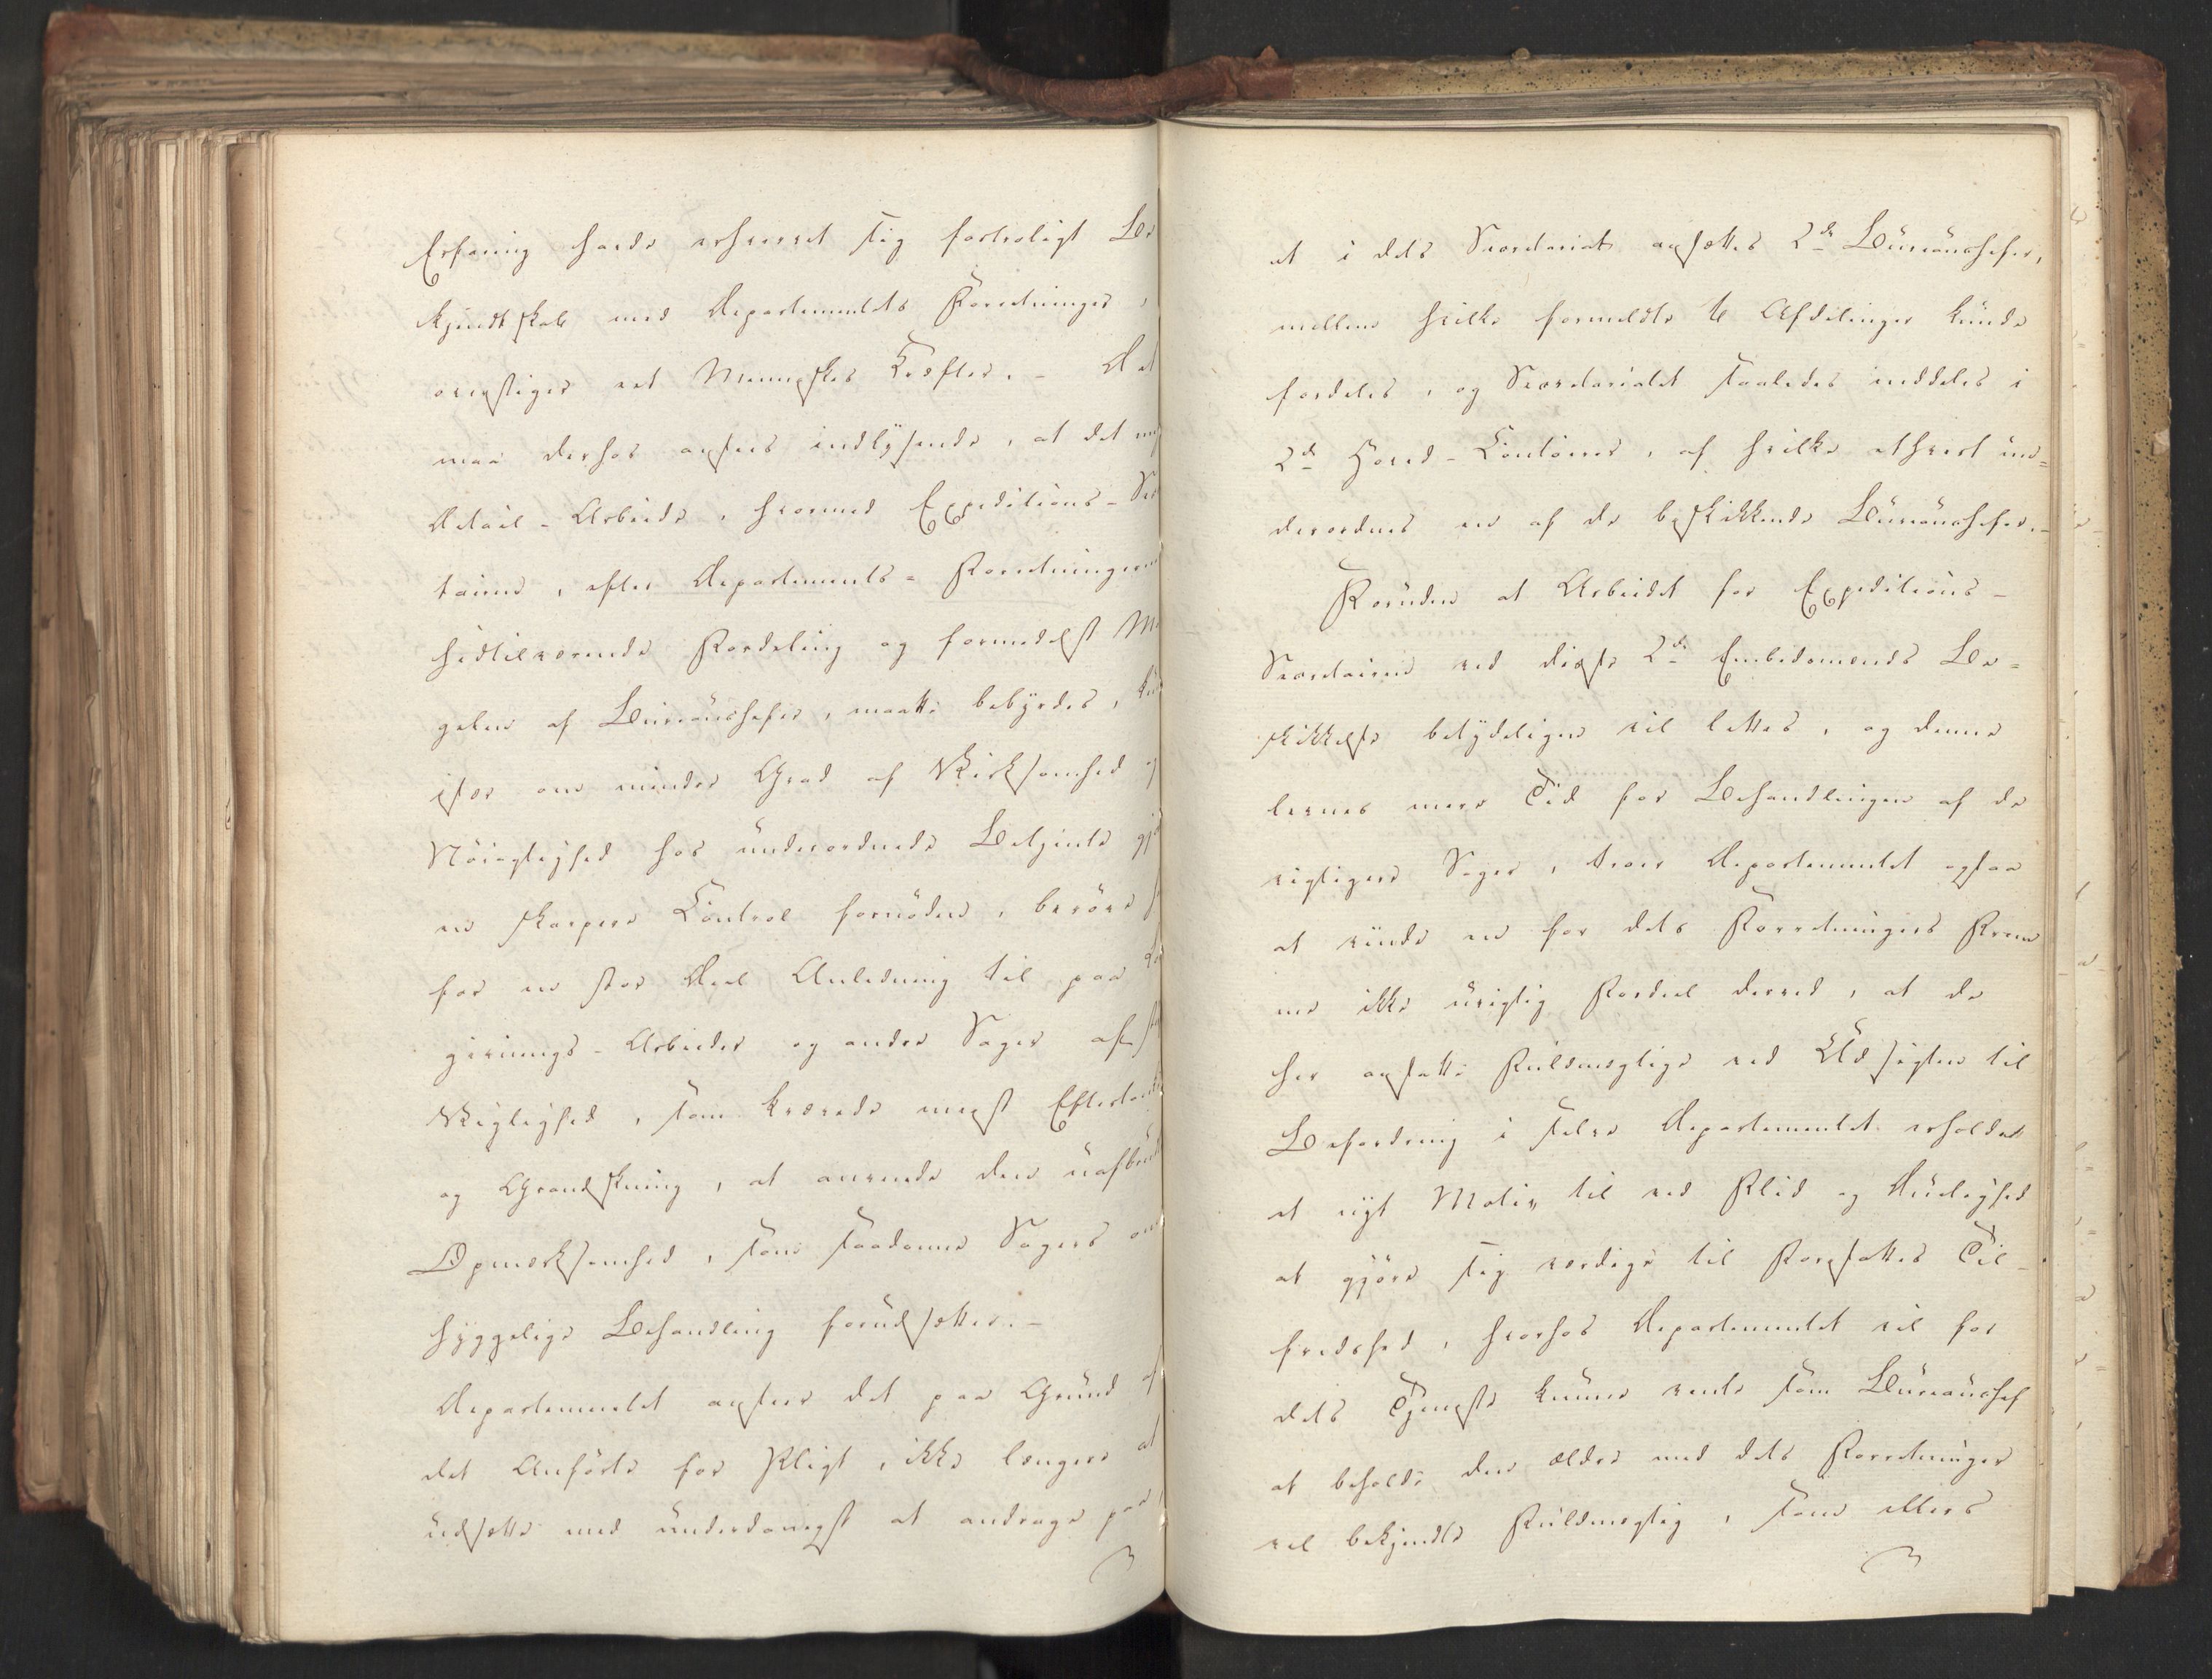 Erfaring havde erhvervet sig fortroligt Be
kjendtskab med Departementets Forretninger,
overstiger eet Menneskes Kræfter. - Det
maa derhos ansees indlysende, at det
Detail-Arbeide, hvormed Expeditions-Se
tairen, efter Departements-Forretningern
hidtilværende Fordeling og formedelst Ma
gelen af Bureauchefer, maatte bebyrdes,
især om mindre Grad af Virksomhed og
Nöiagtighed hos underordnede Betjente gjö
en skarpere Control fornöden, beröve
for en stor Deel Anledning til paa
gerings-Arbeider og andre Sager af
Vigtighed, som krævede meest Eftertanke
og Grandskning, at anvende den uafbrudte
Opmærksomhed, som saadanne Sagers om
hyggelige Behandling forudsætter. -
Departementet anseer det paa Grund af
det Anförte for Pligt, ikke længere at
udsætte med underdanigst at andrage paa
at i dets Secretariat ansættes 2de Bureauchefer,
mellem hvilke formeldte 6 Afdelinger kunde
fordeles, og Secretariatet saaledes inddeles i
2de Hoved-Contoirer, af hvilke ethvert un=
derordnes en af de beskikkende Bureauchefer. -
Foruden at Arbeidet for Expeditions-
Secretairen ved disse 2de Embedsmænds Be=
skikkelse betydeligen vil lettes, og denne
levnes mere Tid for Behandlingen af de
vigtigere Sager, troer Departementet ogsaa
at vinde en for dets Forretningers Frem
me ikke uvigtig Fordeel derved, at de
her ansatte Fuldmægtige ved Udsigten til
Befordring i selve Departementet erholder
et nyt Motiv til ved Flid og Duelighed
at gjöre sig værdige til Foresattes Til-
fredshed, hvorhos Departementet vil for
dets Tjeneste kunne vente som Bureauchef
at beholde den ældre med dets Forretninger
vel bekjendte Fuldmægtig, som ellers